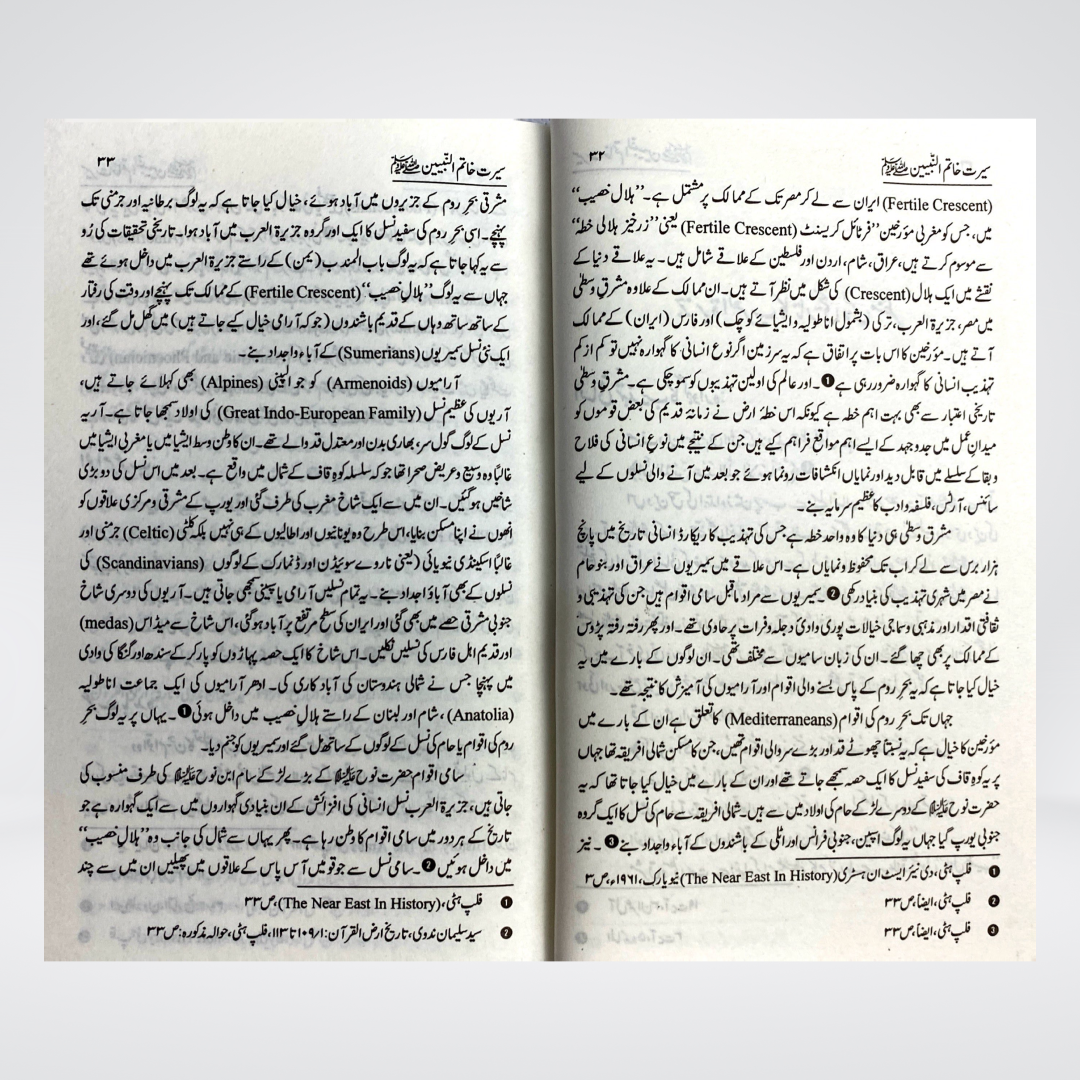 سیرت خاتم النّبیین ﷺ ۳۲
(Fertile Crescent) ایران سے لے کر مصر تک کے ممالک پر مشتمل ہے۔ ”ہلال خصیب“
میں، جس کو مغربی مؤرخین ”فرٹائل کریسنٹ (Fertile Crescent) یعنی ”زرخیز ہلالی خطہ“
سے موسوم کرتے ہیں، عراق، شام، اردن اور فلسطین کے علاقے شامل ہیں۔ یہ علاقے دنیا کے
نقشے میں ایک ہلال (Crescent) کی شکل میں نظر آتے ہیں۔ ان ممالک کے علاوہ مشرقِ وسطیٰ
میں مصر، جزیرۃ العرب، ترکی (بشمول اناطولیہ و ایشیائے کوچک) اور فارس (ایران) کے ممالک
آتے ہیں۔ مؤرخین کا اس بات پر اتفاق ہے کہ یہ سرزمین اگر نوع انسانی کا گہوارہ نہیں تو کم از کم
تہذیب انسانی کا گہوارہ ضرور رہی ہے ❶۔ اور عالم کی اولین تہذیبوں کو سمو چکی ہے۔ مشرقِ وسطیٰ
تاریخی اعتبار سے بھی بہت اہم خطہ ہے کیونکہ اس خطۂ ارض نے زمانۂ قدیم کی بعض قوموں کو
میدانِ عمل میں جدوجہد کے ایسے اہم مواقع فراہم کیے ہیں جن کے نتیجے میں نوع انسانی کی فلاح
و بقا کے سلسلے میں قابل دید اور نمایاں انکشافات رونما ہوئے جو بعد میں آنے والی نسلوں کے لیے
سائنس، آرٹس، فلسفہ و ادب کا عظیم سرمایہ بنے۔
مشرق وسطیٰ ہی دنیا کا وہ واحد خطہ ہے جس کی تہذیب کا ریکارڈ انسانی تاریخ میں پانچ
ہزار برس سے لے کر اب تک محفوظ و نمایاں ہے۔ اس علاقے میں سمیریوں نے عراق اور بنو حام
نے مصر میں شہری تہذیب کی بنیاد رکھی ❷۔ سمیریوں سے مراد ماقبل سامی اقوام ہیں جن کی تہذیبی و
ثقافتی اقدار اور مذہبی و سماجی خیالات پوری وادیٔ دجلہ و فرات پر حاوی تھے۔ اور پھر رفتہ رفتہ پڑوس
کے ممالک پر بھی چھا گئے۔ ان کی زبان سامیوں سے مختلف تھی۔ ان لوگوں کے بارے میں یہ
خیال کیا جاتا ہے کہ یہ بحرِ روم کے پاس بسنے والی اقوام اور آرامیوں کی آمیزش کا نتیجہ تھے۔
جہاں تک بحرِ روم کی اقوام (Mediterraneans) کا تعلق ہے ان کے بارے میں
مؤرخین کا خیال ہے کہ یہ نسبتاً چھوٹے قد اور بڑے سر والی اقوام تھیں، جن کا مسکن شمالی افریقہ تھا جہاں
پر یہ کوہِ قاف کی سفید نسل کا ایک حصہ سمجھے جاتے تھے اور ان کے بارے میں خیال کیا جاتا تھا کہ یہ
حضرت نوح علیہ السلام کے دوسرے لڑکے حام کی اولاد میں سے ہیں۔ شمالی افریقہ سے حام کی نسل کا ایک گروہ
جنوبی یورپ گیا جہاں یہ لوگ اسپین، جنوبی فرانس اور اٹلی کے باشندوں کے آباء و اجداد بنے ❸۔ نیز
❶ فلپ ہٹی، دی نیئر ایسٹ ان ہسٹری (The Near East In History) نیو یارک، ۱۹۶۱ء، ص۳
❷ فلپ ہٹی، ایضاً، ص۳۳
❸ فلپ ہٹی، ایضاً، ص۳۳
سیرت خاتم النّبیین ﷺ ۳۳
مشرقی بحرِ روم کے جزیروں میں آباد ہوئے، خیال کیا جاتا ہے کہ یہ لوگ برطانیہ اور جرمنی تک
پہنچے۔ اسی بحرِ روم کی سفید نسل کا ایک اور گروہ جزیرۃ العرب میں آباد ہوا۔ تاریخی تحقیقات کی رُو
سے یہ کہا جاتا ہے کہ یہ لوگ باب المندب (یمن) کے راستے جزیرۃ العرب میں داخل ہوئے تھے
جہاں سے یہ لوگ ”ہلالِ خصیب“ (Fertile Crescent) کے ممالک تک پہنچے اور وقت کی رفتار
کے ساتھ ساتھ وہاں کے قدیم باشندوں (جو کہ آرامی خیال کیے جاتے ہیں) میں گھل مل گئے، اور
ایک نئی نسل سمیریوں (Sumerians) کے آباء و اجداد بنے۔
آرامیوں (Armenoids) کو جو الپینی (Alpines) بھی کہلائے جاتے ہیں،
آریوں کی عظیم نسل (Great Indo-European Family) کی اولاد سمجھا جاتا ہے۔ آریہ
نسل کے لوگ گول سر، بھاری بدن اور معتدل قد والے تھے۔ ان کا وطن وسط ایشیا میں یا مغربی ایشیا میں
غالباً وہ وسیع و عریض صحرا تھا جو کہ سلسلۂ کوہِ قاف کے شمال میں واقع ہے۔ بعد میں اس نسل کی دو بڑی
شاخیں ہو گئیں۔ ان میں سے ایک شاخ مغرب کی طرف گئی اور یورپ کے مشرقی و مرکزی علاقوں کو
انھوں نے اپنا مسکن بنایا، اس طرح وہ یونانیوں اور اطالیوں کے ہی نہیں بلکہ کلٹی (Celtic) جرمنی اور
غالباً اسکینڈی نیویائی (یعنی ناروے سوئیڈن اور ڈنمارک کے لوگوں (Scandinavians) کی
نسلوں کے بھی آباؤ اجداد بنے۔ یہ تمام نسلیں آرامی یا سمجھی جاتی ہیں۔ آریوں کی دوسری شاخ
جنوبی مشرقی حصے میں بھی گئی اور ایران کی سطح مرتفع پر آباد ہو گئی، اس شاخ سے میڈاس (medas)
اور قدیم اہل فارس کی نسلیں نکلیں۔ اس شاخ کا ایک حصہ پہاڑوں کو پار کر کے سندھ اور گنگا کی وادی
میں پہنچا جس نے شمالی ہندوستان کی آباد کاری کی۔ ادھر آرامیوں کی ایک جماعت اناطولیہ
(Anatolia)، شام اور لبنان کے راستے ہلالِ خصیب میں داخل ہوئی ❶۔ یہاں پر یہ لوگ بحرِ
روم کی اقوام یا حام کی نسل کے لوگوں کے ساتھ مل گئے اور سمیریوں کو جنم دیا۔
سامی اقوام حضرت نوح علیہ السلام کے بڑے لڑکے سام ابن نوح علیہ السلام کی طرف منسوب کی
جاتی ہیں، جزیرۃ العرب نسل انسانی کی افزائش کے ان بنیادی گہواروں میں سے ایک گہوارہ ہے جو
تاریخ کے ہر دور میں سامی اقوام کا وطن رہا ہے۔ پھر یہاں سے شمال کی جانب وہ ”ہلالِ خصیب“
میں داخل ہوئیں ❷۔ سامی نسل سے جو قومیں آس پاس کے علاقوں میں پھیلیں ان میں سے چند
❶ فلپ ہٹی، (The Near East In History)، ص۳۳
❷ سید سلیمان ندوی، تاریخ ارض القرآن: ۱/۱۰۹ تا ۱۱۳، فلپ ہٹی، حوالہ مذکورہ: ص۳۳